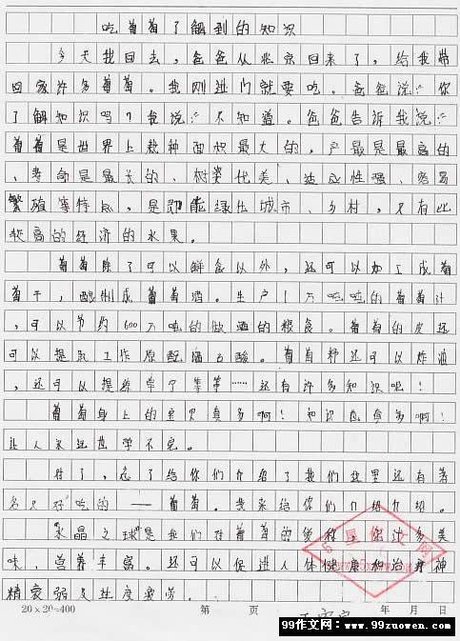 吃葡萄了解到的知识
今天我回去，爸爸从北京回来了，给我带
回家许多葡萄。我刚进门就要吃。爸爸说：“你
了解知识吗？我说：“不知道。爸爸告诉我说：“
葡萄是世界上栽种面积最大的，产量是最高的
、寿命是最长的、树姿优美、适应性强、容易
繁殖等特点，是即能绿化城市、乡村，又有比
较高的经济的水果。
葡萄除了可以鲜食以外，还可以加工成葡
萄干，酿制成葡萄酒。生产1万吨的葡萄汁
，可以节约600万吨的做酒的粮食。葡萄的皮还
可以提取工作原配酒石酸。葡萄籽还可以炸油
，还可以提炼单宁等……还有许多知识呢！
葡萄身上的宝贝真多啊！知识也真多啊！
让人永远也学不完。
对了，忘了给你们介绍了我们这里还有著
名又好吃的——葡萄。我来给你们介绍介绍。
“水晶之球”是我们对葡萄的
味，营养丰富。还可以促进人体健康和治疗神
精衰弱及过度疲劳。
20×20=400 第 页 年 月 日
99作文网 http://www.99zuowen.com/